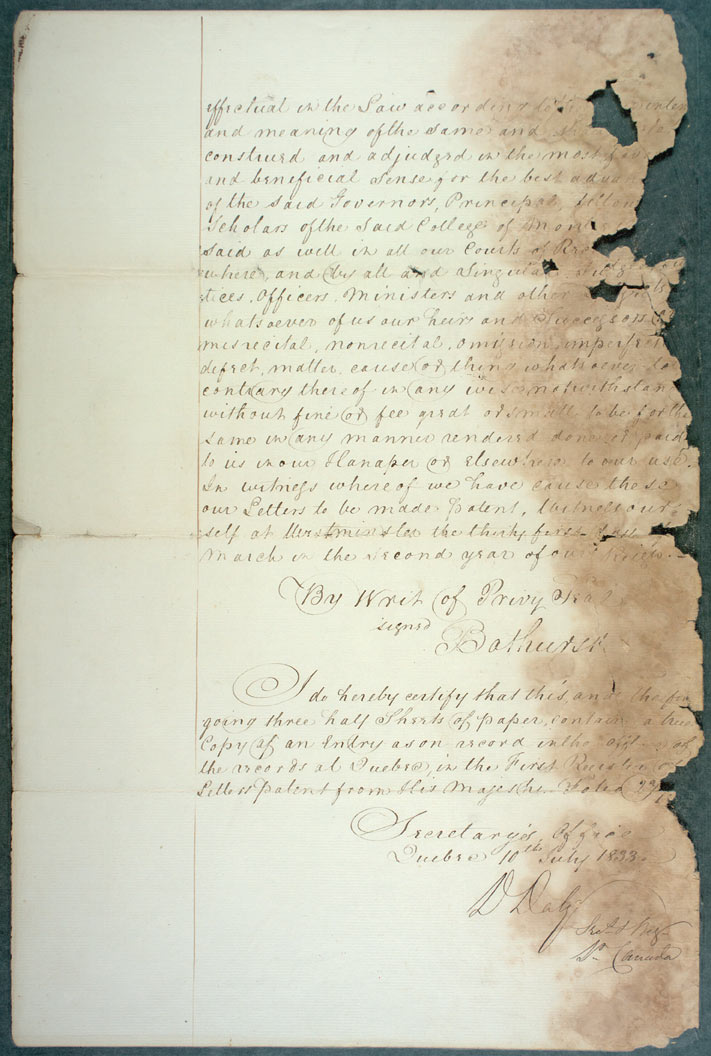 effectual in the Law according to the
and meaning of the same and
construed and adjudged in the most
and beneficial sense for the best
of the said Governors, Principal,
Scholars of the Said College of
said as well in all our Courts of
where, and by all and Singular
tices, Officers, Ministers and other
whatsoever of us our heirs and Successors
misrecital, nonrecital, omission,
defect, matter, cause or thing whatsoever
contrary thereof in any wise
without fine or fee great or small to be for the
same in any manner rendered done or paid
to us in our Hanaper or elsewhere to our use.
In witness where of we have cause these
our Letters to be made Patent, Witness our
self at Westminster the thirty first day
March in the second year of our
By Writ of Privy Seal
signed
Bathurst
I do hereby certify that this and the
going three half Sheets of paper contain a true
Copy of an Entry as on record in the of
the records at Quebec, in the First Register
Letters Patent from His Majesty
Secretary's Office
Quebec 10th July 1833.
D Daly
Secy & Reg
Canada